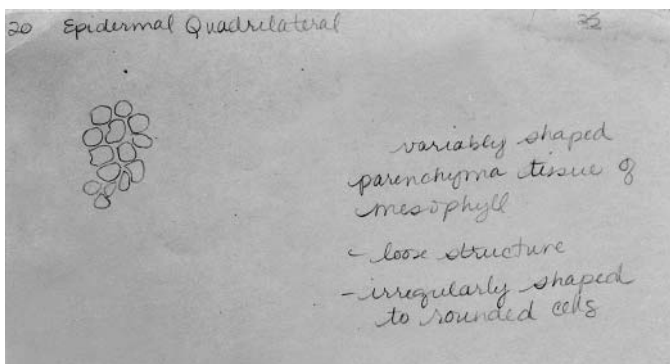 20 Epidermal Quadrilateral
variably shaped
parenchyma tissue of
mesophyll
- loose structure
- irregularly shaped
to rounded cells